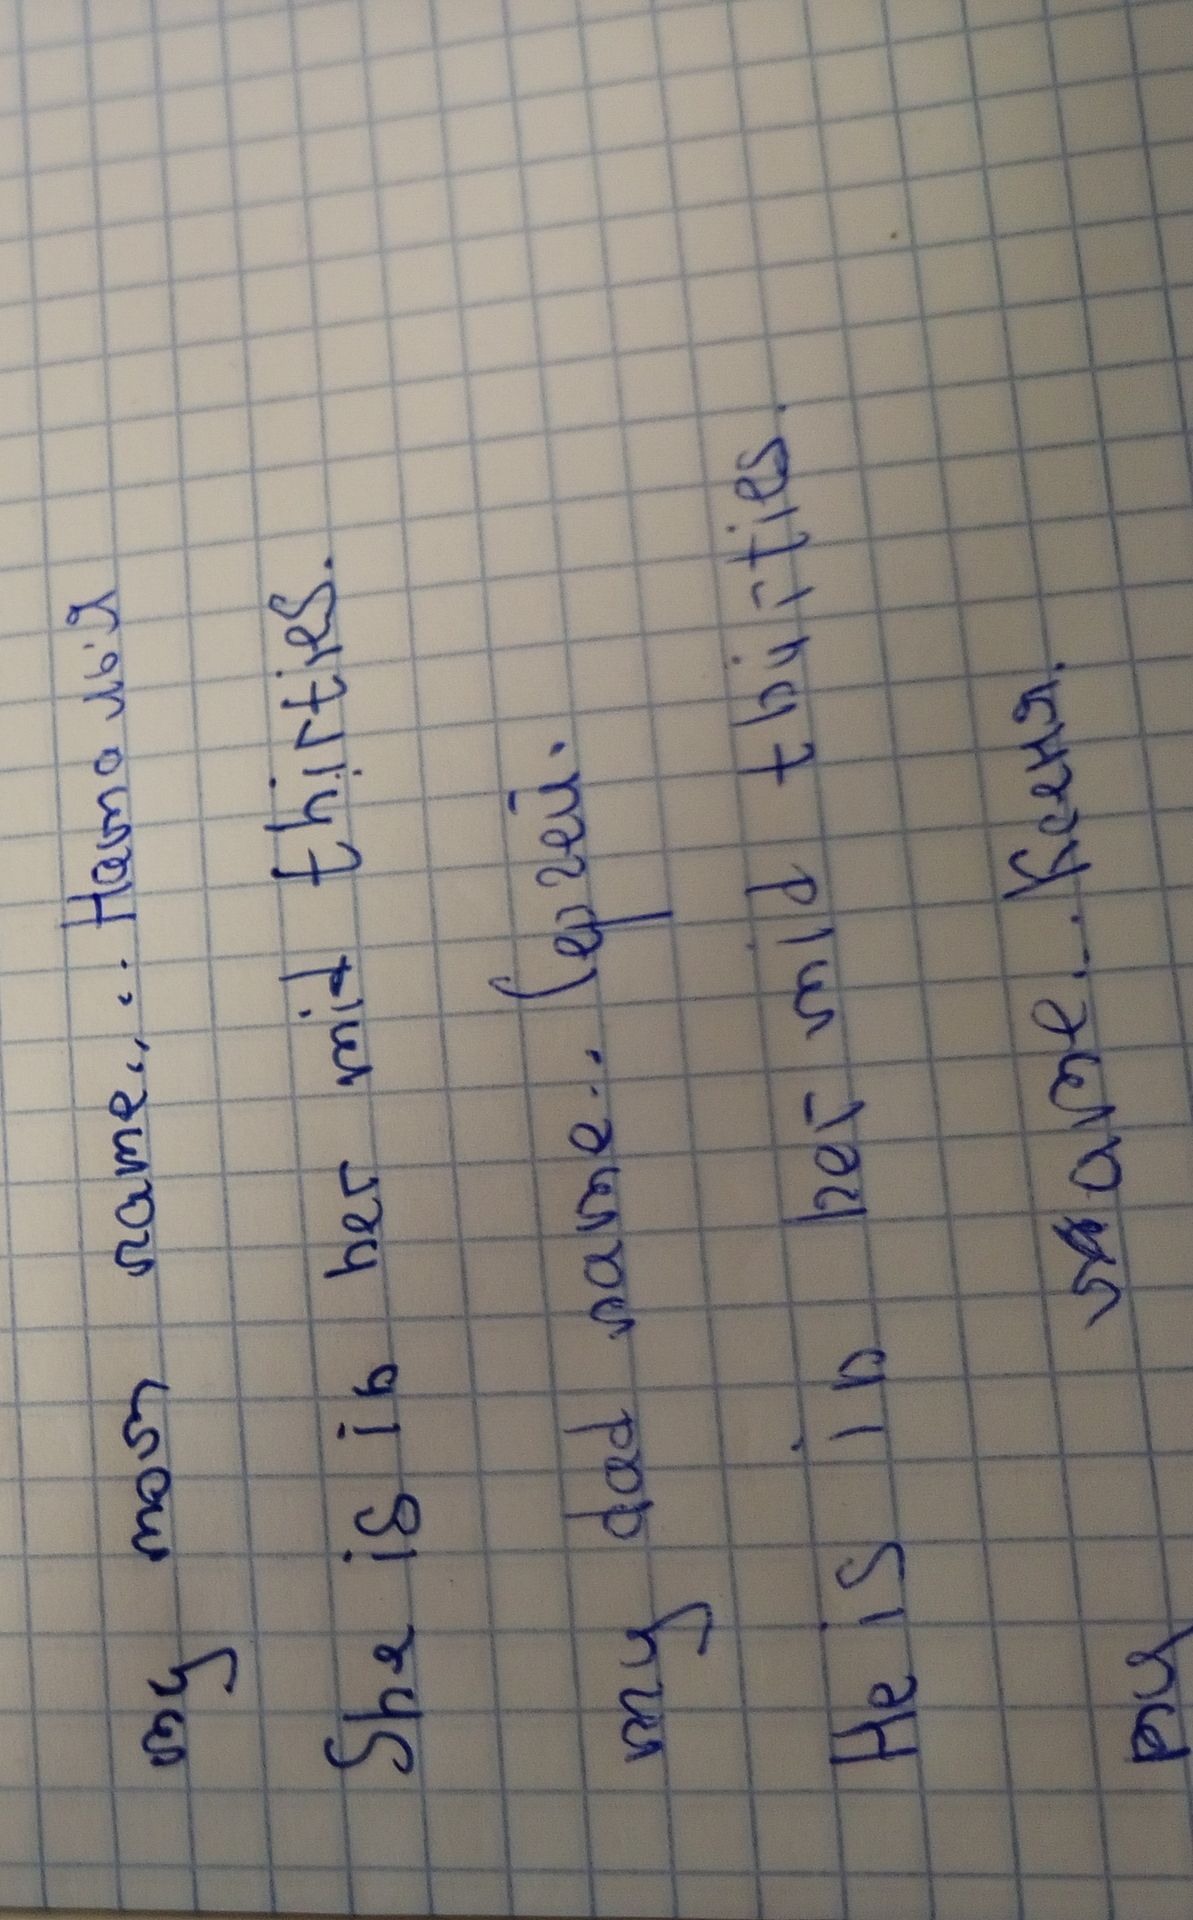 my mom name.... Наталья
She is in her mid thirties.
my dad name... Сергей.
He is in her mid thirties.
my name... Ксения.